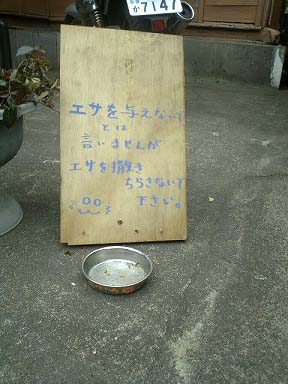 か 7147
エサを与えないで
とは
言いませんが
エサを撒き
ちらさないで
下さい。